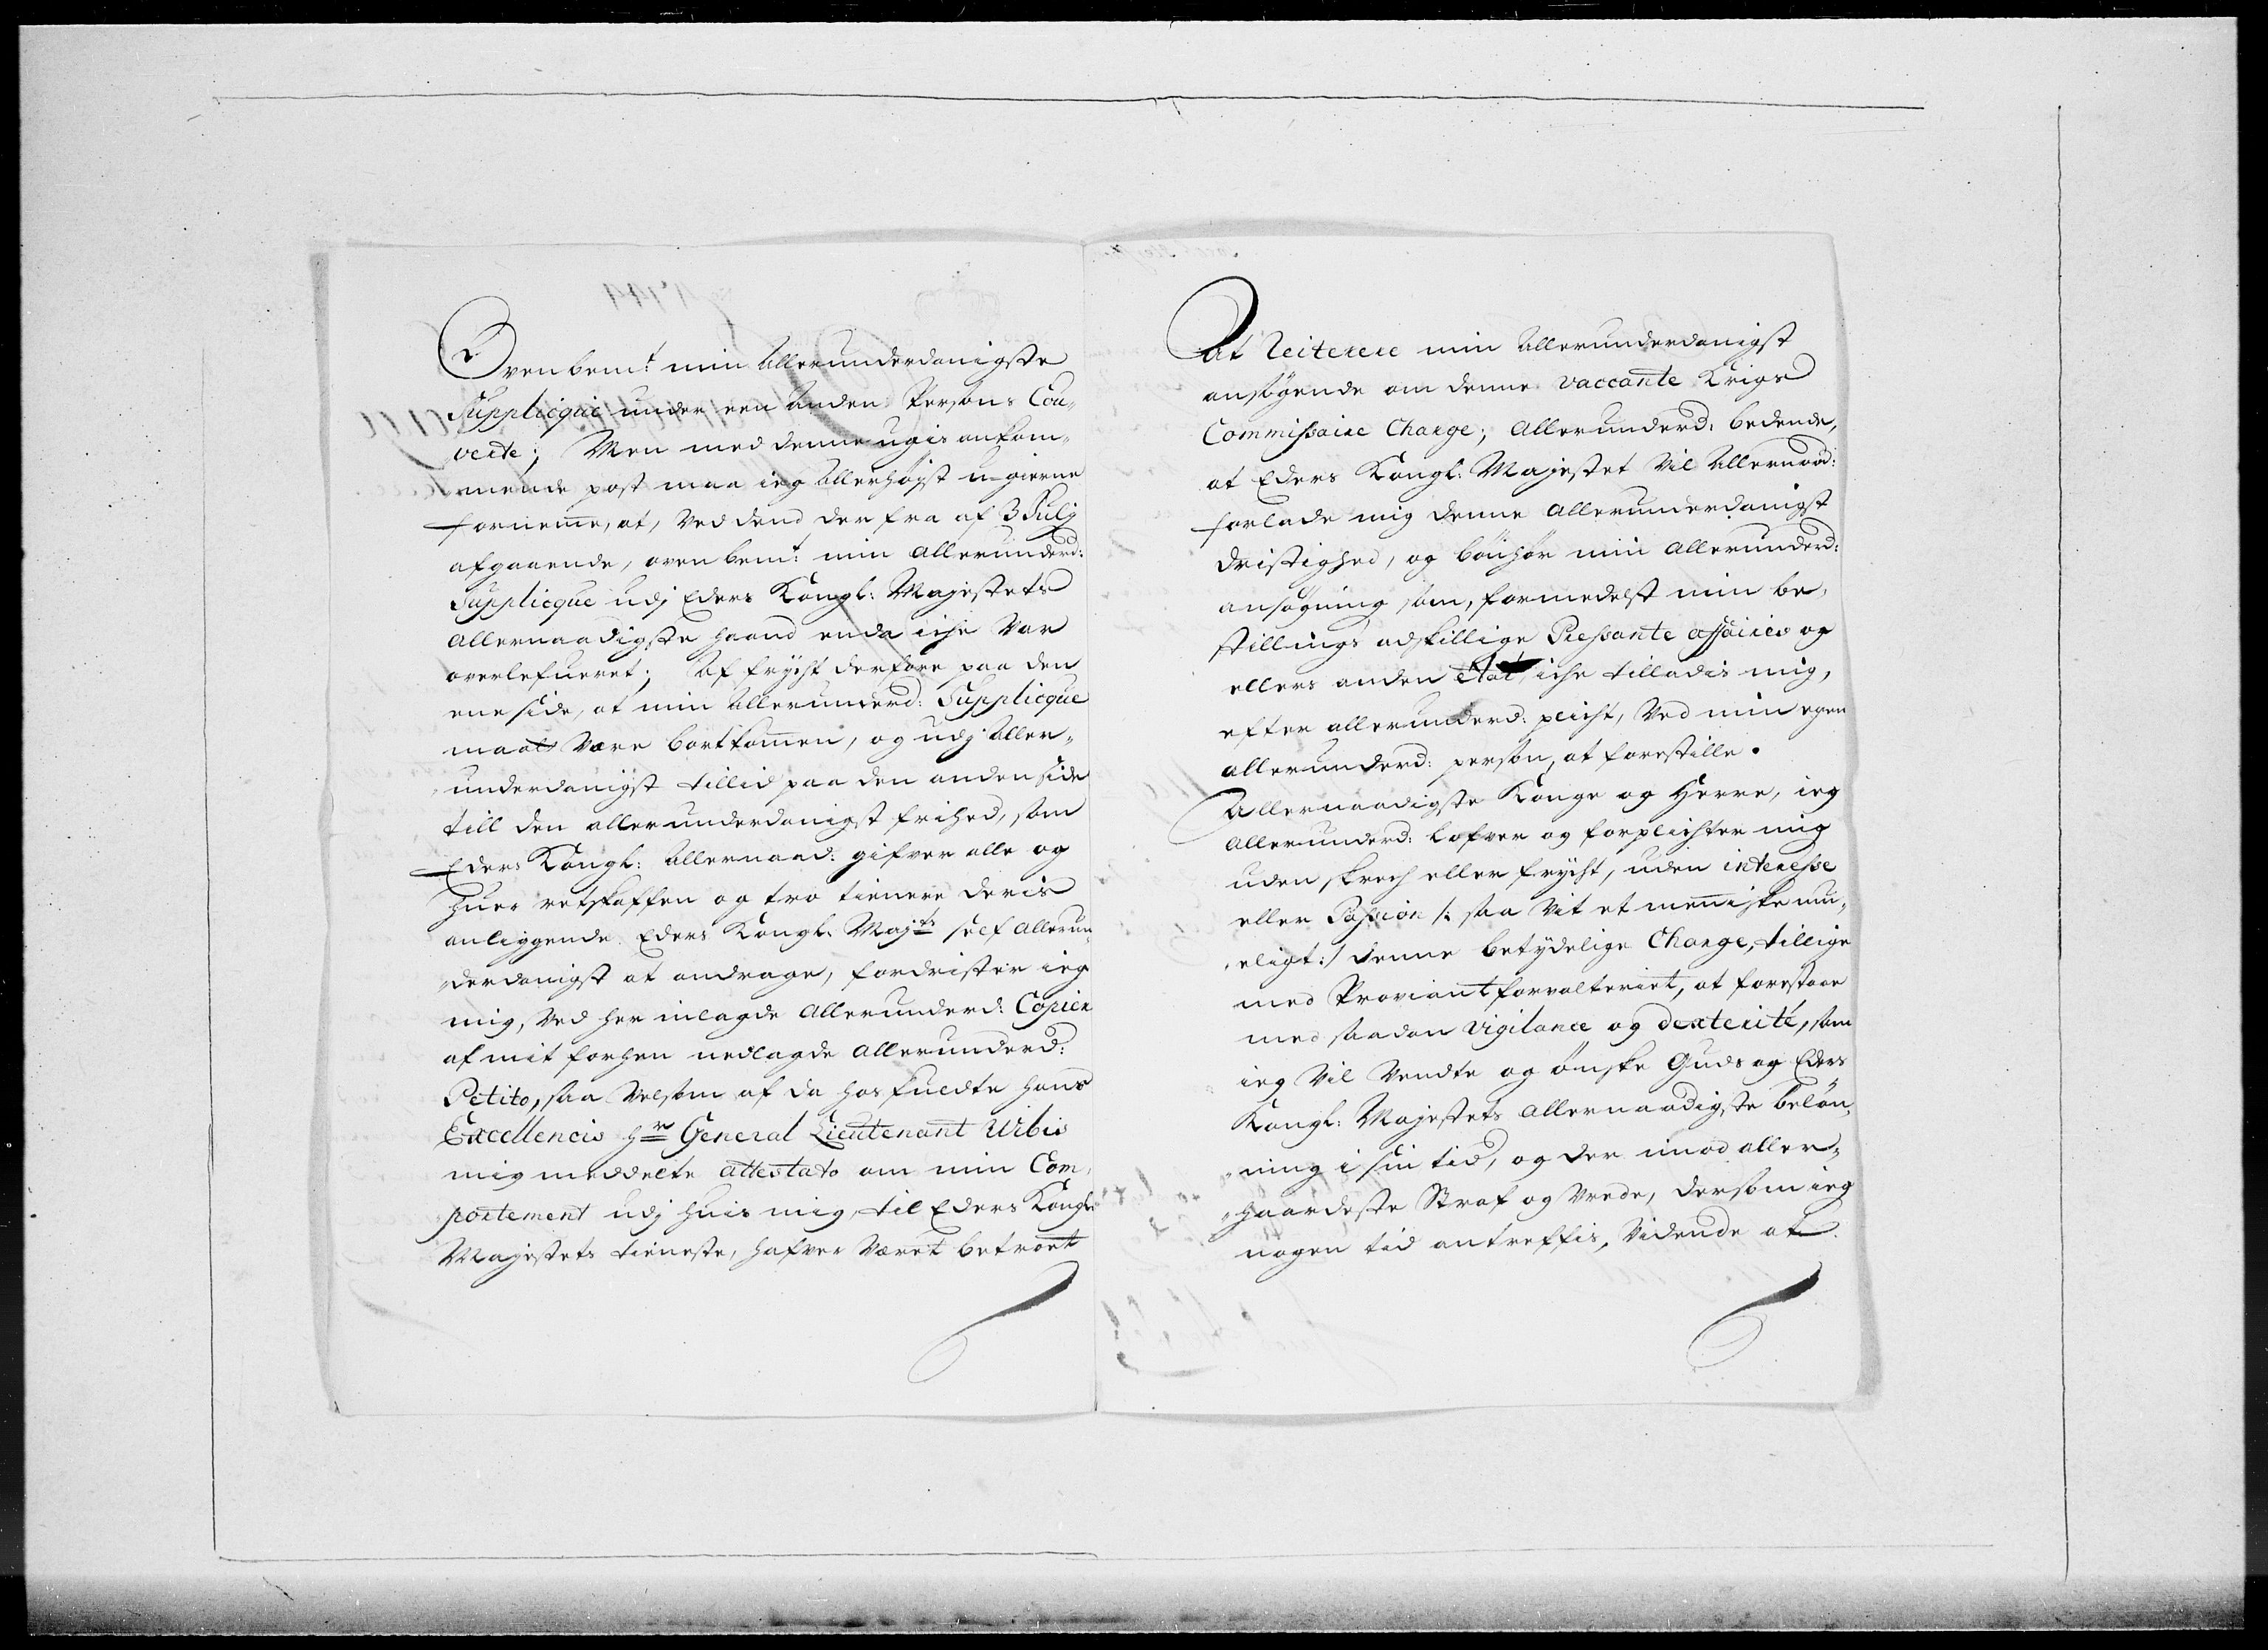 Ovenbemt min allerunderdanigste
Supplicque under een anden Persons Cou„
verte; Men med denne ugis ankom„
mende post maa ieg allerhøyst u-gierne
forneme, at, ved dend der fra af 3 Julij
afgaaende, ovenbemt min allerunderd:
Supplicque udj Eders Kongl: Majestets
allernaadigste haand enda iche var
overlefueret; Af frycht derfore paa den
ene side, at min allerunderd: Supplicque
maatte være bortkomen, og udj aller„
underdanigst tillid paa den anden side
till den allerunderdanigst frihed, som
Eders Kongl: allernaad: gifver alle og
huer retskaffen og tro tienere deris
anliggende Eders Kongl: Majts self allerun„
derdanigst at andrage, fordrister ieg
mig, ved her inlagde allerunderd: Copier
af mit forhen nedlagde allerunderd:
Petito, saa velsom af da hosfuldte hans
Excellencis Hr General Lieutenant Wibes
mig meddelte attestato om min Com„
portement udj huis mig, til Eders Kongl:
Majestets tieneste, hafver været betroet
At reiterere min allerunderdanigst
ansøgende om denne vaccante Krigs
Commissaire Charge; allerunderd: bedende,
at Eders Kongl: Majestet vil allernaad:
forlade mig denne allerunderdanigst
dristighed, og bønhør min allerunderd:
ansøgning, som, formedelst min be„
stillings adskillige Pressante affaires og
ellers anden Etat, iche tillades mig,
efter allerunderd: plicht, ved min egen
allerunderd: person, at forestille.
Allernaadigste Konge og Herre, ieg
allerunderd: lofver og forplichter mig
uden skrech eller frycht, uden interesse
eller Passion /: saa vit et meniske mu„
„eligt :/ denne betydelige Charge, tillige
med Proviantforvalteriet, at forestaae
med saadan vigilance og dexterité, som
ieg vil vendte og ønske Guds og Eders
Kongl: Majestets allernaadigste beløn„
„ning i sin tid, og der imod aller„
„haardeste Straf og vrede, dersom ieg
nogen tid antreffis, vidende at